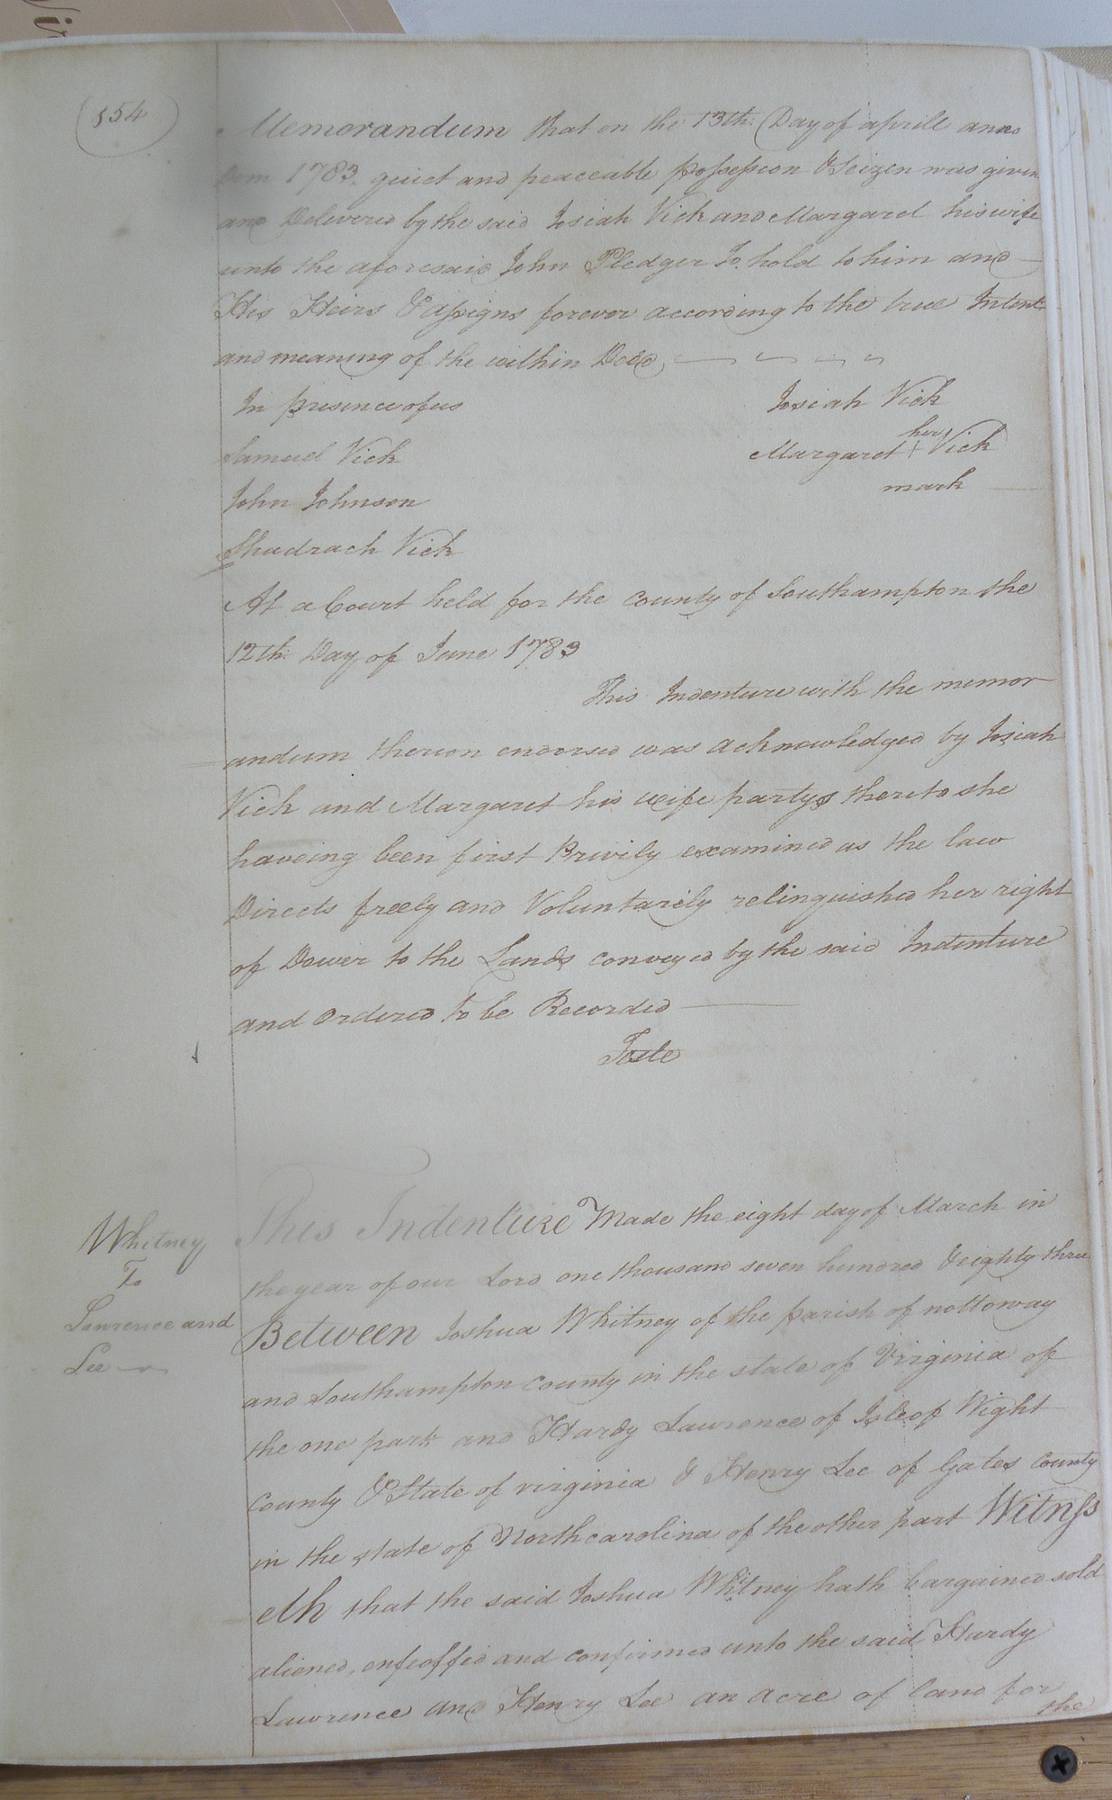 154
Memorandum that on the 13th Day of aprill anno
Dom 1783. quiet and peaceable possession & Seizen was given
and Delivered by the said Josiah Vick and Margaret his wife
unto the aforesaid John Pledger To hold to him and
His Heirs & assigns forever according to the true Intent
and meaning of the within Deed,
In presence of us
Josiah Vick
Samuel Vick
Margaret her + Vick
mark
John Johnson
Shadrach Vick
At a Court held for the county of Southampton the
12th Day of June 1783
This Indenture with the memor
andum thereon endorsed was acknowledged by Josiah
Vick and Margaret his wife partys thereto she
haveing been first Privily examined as the law
Directs freely and Voluntarily relinquished her right
of Dower to the Lands conveyed by the said Indenture
and ordered to be Recorded
Teste
Whitney
To
Lawrence and
Lee
This Indenture Made the eight day of March in
the year of our Lord one thousand seven hundred & eighty three
Between Joshua Whitney of the parish of nottoway
and Southampton county in the state of Virginia of
the one part and Hardy Lawrence of Isle of Wight
County & State of virginia & Henry Lee of Gates County
in the state of North carolina of the other part Witness
eth that the said Joshua Whitney hath bargained sold
aliened, enfeoffed and confirmed unto the said Hardy
Lawrence and Henry Lee an acre of land for
the